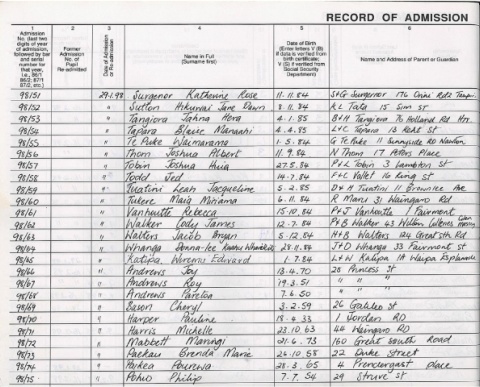 RECORD OF ADMISSION
1 2 3 4 5 6
Admission No. (last two digits of year of admission, followed by bar and serial number for that year, i.e., 86/1 86/2; 87/1 87/2, etc.)
Former Admission No. of Pupil Re-admitted
Date of Admission or Re-admission
Name in Full (Surname first)
Date of Birth (Enter letters V (B) if data is verified from birth certificate; V (S) if verified from Social Security Department)
Name and Address of Parent or Guardian
98/51 29.1.98 Surgenor Katherine Rose 11.11.84 S+G Surgenor 176 Rd
98/52 " Sutton Hikurai Jane Dawn 8.11.84 K L Tata 15 Sion St
98/53 " Tangiora Jahna Hera 4.1.85 B+H Tangiora 76 Holland Rd
98/54 " Tapara Blaise Manaahi 4.4.85 L+C Tapara 13 St
98/55 " Te Puke Waimarama 1.5.84 G Te Puke 11 Sunnyside Rd
98/56 " Thorn Joshua Albert 11.9.84 N Thorn 17 Peters Place
98/57 " Tobin Joshua Huia 27.5.84 P+L Tobin 3 Lambton St
98/58 " Todd Jed 14.7.84 F+L 16 King St
98/59 " Tuatini Leah Jacqueline 5.2.85 D+H Tuatini 11 Brownlee Ave
98/60 " Tukere Maia Miriama 6.11.84 R Maru 31 Waingaro Rd
98/61 " Vanhuitte Rebecca 15.10.84 P+J Vanhuitte 1 Fairmont
98/62 " Walker Cody James 12.7.84 P+B Walker 43
98/63 " Walters Jacob Bryan 5.12.84 H+B Walters 124 Great Sth Rd
98/64 " Whanga Donna-lee 28.11.84 J+D Whanga 33 Fairmont St
98/65 " Katipa Wiremu Edward 1.7.84 L+W Katipa 1A Waipa Esplanade
98/66 " Andrews Joy 13.4.70 28 Princess St
98/67 " Andrews Roy 19.3.51 " " "
98/68 " Andrews 7.6.50 " " "
98/69 " Bason Cheryl 3.2.59 26 Galileo St
98/70 " Harper Pauline 18.4.33 1 Jordan RD
98/71 " Harris Michelle 23.10.63 44 Waingaro RD
98/72 " Mabbett Marangi 21.6.73 160 Great South Road
98/73 " Paekau Brenda Marie 24.10.58 22 Duke Street
98/74 " Paikea Pourewa 28.3.65 4 Prendergast place
98/75 " Pohio Philip 7.7.54 29 Struve St